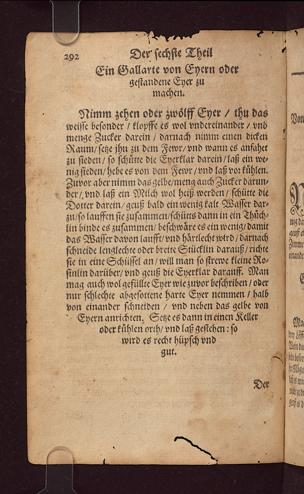 292
Der sechste Theil
Ein Gallarte von Eyern oder
gestandene Eyer zu
machen.
Nimm zehen oder zwölff Eyer / thu das
weisse besonder / klopffs es wol undereinander / und
menge Zucker darein / darnach nimm einen dicken
Raum / setze jhn zu dem Fewr / und wann es anfahet
zu sieden / so schütte die Eyerklar darein / laß ein we-
nig sieden / hebe es von dem Fewr / und laß vor kühlen.
Zuvor aber nimm das gelbe / meng auch Zucker darun-
der / und laß ein Milch wol heiß werden / schütte die
Dotter darein / geuß bald ein wenig kalt Wasser dar-
zu / so lauffen sie zusammen / schütts dann in ein Thüch-
lin binde es zusammen / beschwäre es ein wenig / damit
das Wasser davon lauff / und härtlecht wird / darnach
schneide lenglechte oder breite Stücklin darauß / richte
sie in eine Schüssel an / will man so strewe kleine Ro-
sinlin darüber / und geuß die Eyerklar darauff. Man
mag auch wol gefüllte Eyer wie zuvor beschriben / oder
nur schlechte abgesottene harte Eyer nemmen / halb
von einander schneiden / und neben das gelbe von
Eyern anrichten. Setze es dann in einen Keller
oder kühlen orth / und laß gestehen: so
wird es recht hüpsch und
gut.
Der